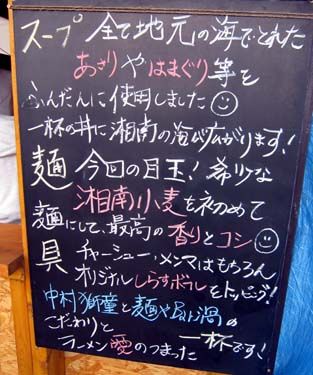 スープ 全て地元の海でとれた
あさりやはまぐり等を
ふんだんに使用しました
一杯の丼に湘南の海が広がります!
麺 今回の目玉!希少な
湘南小麦を初めて
麺にして、最高の香りとコシ
具 チャーシュー・メンマはもちろん
オリジナルしらすボールをトッピング!
中村獅童と麺や渦の
こだわりと
ラーメン愛のつまった 一杯です!